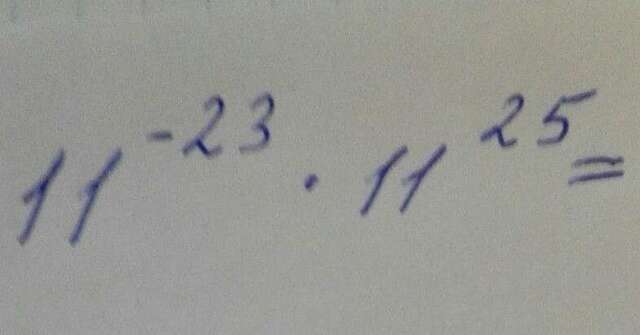 11⁻²³ · 11²⁵ =